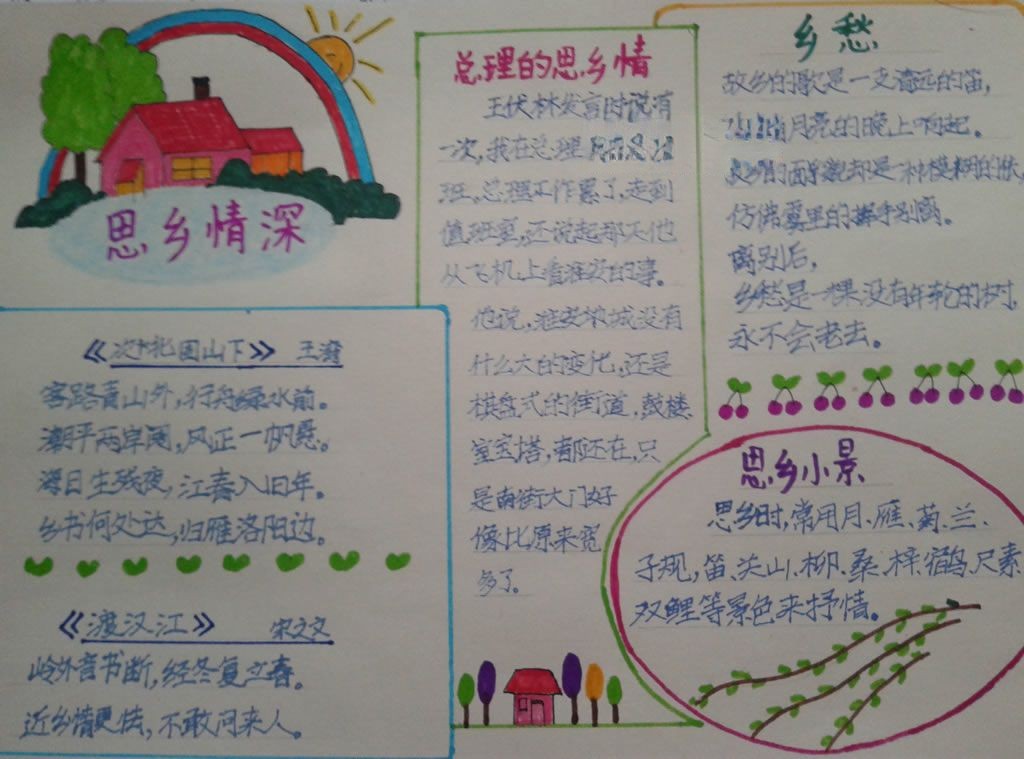 思乡情深
《次北固山下》 王湾
客路青山外，行舟绿水前。
潮平两岸阔，风正一帆悬。
海日生残夜，江春入旧年。
乡书何处达，归雁洛阳边。
《渡汉江》 宋之文
岭外音书断，经冬复立春。
近乡情更怯，不敢问来人。
总理的思乡情
王伏林发言时说有
一次，我在总理
班，总理工作累了，走到
值班室，还说起那天他
从飞机上看淮安的事。
他说，淮安城没有
什么大的变化，还是
棋盘式的街道，鼓楼
宝塔，都还在，只
是南街大门好
像比原来宽
多了。
乡愁
故乡的歌是一支清远的笛，
月亮的晚上响起。
乡的面貌却是一种模糊的
仿佛雾里的挥手别离。
离别后，
乡愁是一棵没有年轮的树，
永不会老去。
思乡小景
思乡时，常用月、雁、菊、兰、
子规，笛、关山、柳、桑、梓、宿鸟、尺素
双鲤等景色来抒情。